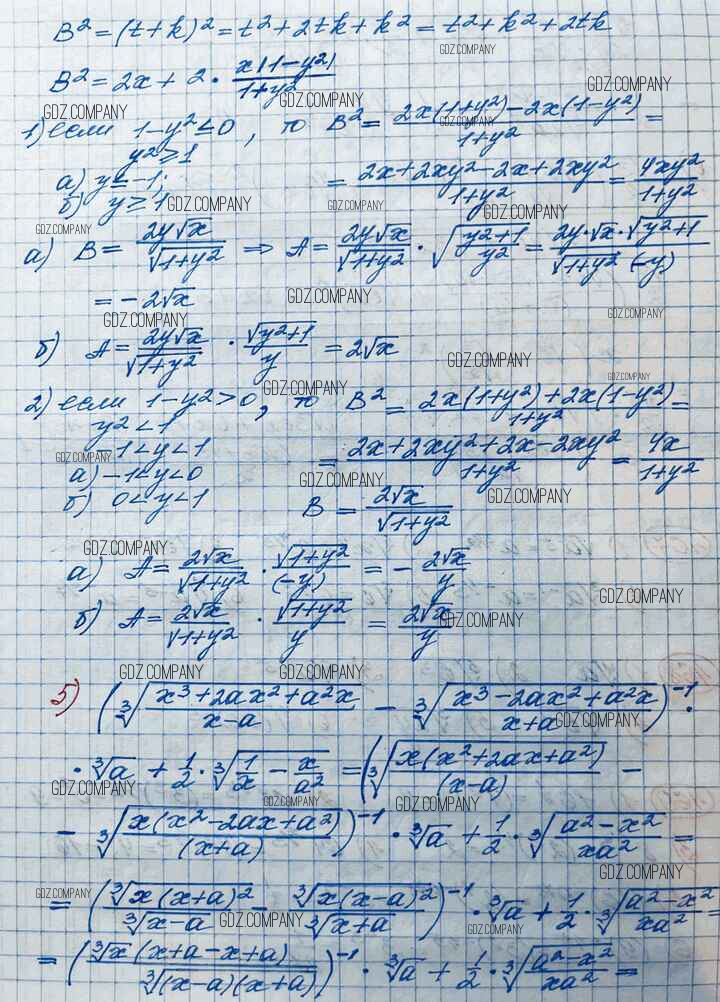 B² = (t+k)² = t² + 2tk + k² = t² + k² + 2tk
GDZ.COMPANY
B² = 2x + 2 · x(1-y²)/(1+y²)
GDZ.COMPANY GDZ.COMPANY GDZ.COMPANY
1) если 1-y² ≤ 0, то B² = (2x(1+y²) - 2x(1-y²))/(1+y²) =
GDZ.COMPANY
y² ≥ 1
а) y ≤ -1; = (2x+2xy²-2x+2xy²)/(1+y²) = 4xy²/(1+y²)
б) y ≥ 1 GDZ.COMPANY GDZ.COMPANY GDZ.COMPANY
GDZ.COMPANY
а) B = 2y√x/√(1+y²) ⇒ A = 2y√x/√(1+y²) · √((y²+1)/y²) = 2y·√x·√(y²+1)/(√(1+y²)(-y))
= -2√x GDZ.COMPANY
GDZ.COMPANY GDZ.COMPANY
б) A = 2y√x/√(1+y²) · √(y²+1)/y = 2√x GDZ.COMPANY
GDZ.COMPANY GDZ.COMPANY
2) если 1-y² > 0, то B² = (2x(1+y²) + 2x(1-y²))/(1+y²) =
y² < 1
GDZ.COMPANY -1 < y < 1 = (2x+2xy²+2x-2xy²)/(1+y²) = 4x/(1+y²)
а) -1 < y < 0 GDZ.COMPANY
б) 0 < y < 1 B = 2√x/√(1+y²) GDZ.COMPANY
GDZ.COMPANY
а) A = 2√x/√(1+y²) · √(1+y²)/(-y) = - 2√x/y
GDZ.COMPANY
б) A = 2√x/√(1+y²) · √(1+y²)/y = 2√x/y GDZ.COMPANY
GDZ.COMPANY GDZ.COMPANY
5) (∛((x³+2ax²+a²x)/(x-a)) - ∛((x³-2ax²+a²x)/(x+a)))⁻¹ ·
GDZ.COMPANY
· ∛a + 1/2 · ∛(1/x - x/a²) = (∛(x(x²+2ax+a²)/(x-a)) -
GDZ.COMPANY GDZ.COMPANY GDZ.COMPANY
- ∛(x(x²-2ax+a²)/(x+a)))⁻¹ · ∛a + 1/2 · ∛((a²-x²)/xa²) =
GDZ.COMPANY
GDZ.COMPANY
= (∛x(x+a)²/∛(x-a) - ∛x(x-a)²/∛(x+a))⁻¹ · ∛a + 1/2 · ∛((a²-x²)/xa²) =
GDZ.COMPANY GDZ.COMPANY
= (∛x(x+a-x+a)/∛((x-a)(x+a)))⁻¹ · ∛a + 1/2 · ∛((a²-x²)/xa²) =